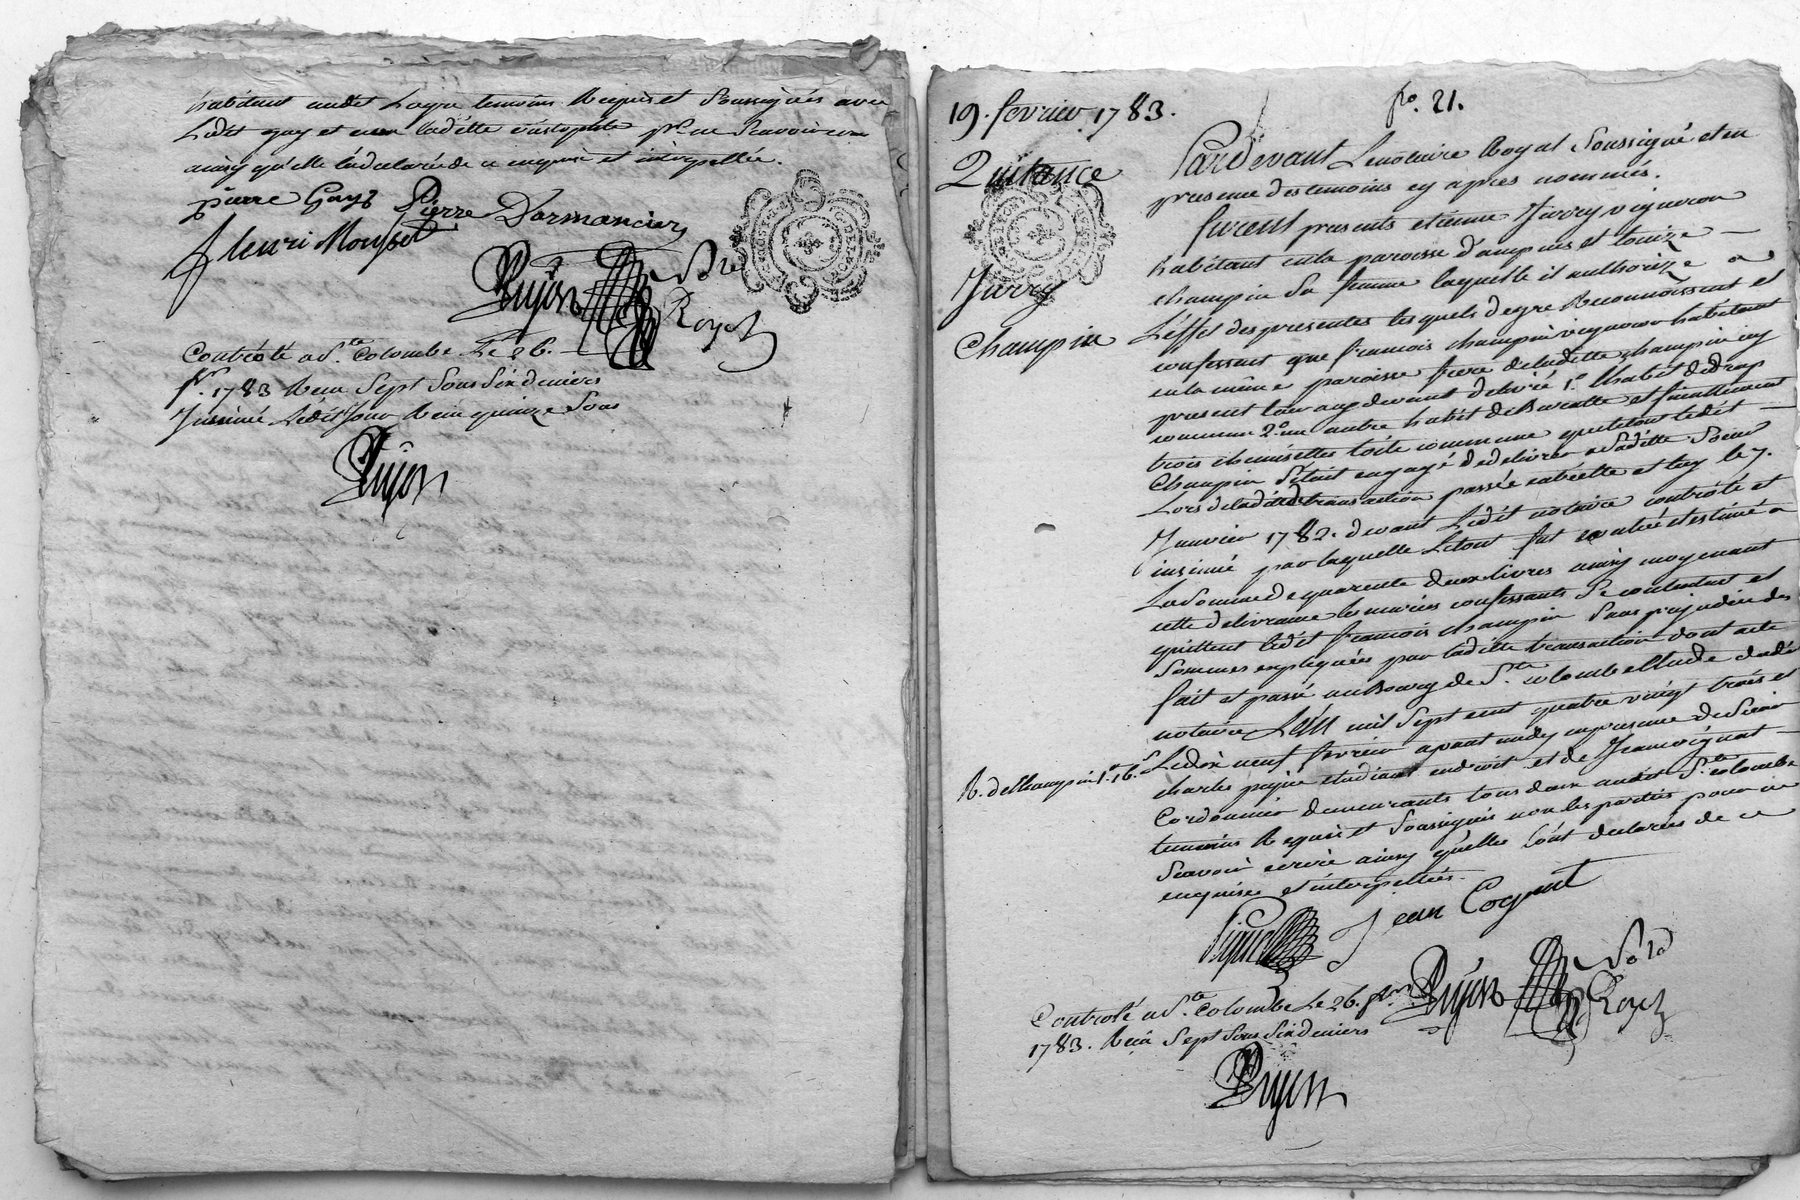 habitant audit Layre temoins Requis et Soussignés avec
Ledit gay et non ladette pr. ne Scavoir
ainsy qu'elle l'a declaré de ce enquise et interpellée.
pierre Gay Pierre Dormancier
henri Mousset
Pujon No.re
Royal
Contrôlé a S.te Colombe Le 26.
fr. 1783 Recu Sept Sous Six deniers
Insinué Ledit Jour Recu quinze Sous
Pujon
19. fevrier 1783.
f.o 21.
Quitance
Jurry
Champin
Pardevant Lenotaire Royal Soussigné et en
presence des temoins cy apres nommés.
furent presents etienne Jurry vigneron
habitant en la paroisse d'ampuis et Louize
champin Sa femme laquelle il authorize a
L'effet des presentes lesquels de gré Reconnoissent et
confessent que francois champin vigneron habitant
en la même paroisse frere de ladette champin icy
present leur a cy devant delivré 1.o Lhabit de drap
commun 2.o un autre habit de Buratte et finallement
trois chemisettes toile commune que le tout ledit
Champin S'etoit engagé de delivrer a ladette Soeur
Lors de la transaction passée entr'elle et luy le 7.
Janvier 1782. devant Ledit notaire controlé et
insinué par laquelle Letout fut evalué et estimé a
La Somme de quarente deux livres ainsy moyenant
cette delivrance les mariés confessants Se contentent et
quittent ledit francois champin Sans prejudice des
Sommes expliquées par ladette transaction dont acte
fait et passé au Bourg de S.te colombe Etude dudit
notaire L'an mil Sept cent quatre vingt trois et
Le dix neuf fevrier apant midy en presence de Sieur
R. de Champin 1.# 16.s
charles pujin etudiant en droit et de Jean cognat
Cordonnier demeurants tous deux audit S.te colombe
temoins Requis et Soussignés non les parties pour ne
Scavoir ecrire ainsy qu'elles l'ont declarées de ce
enquises et interpellées.
Jean Cognat
Pujon No.re
Royal
Contrôlé a S.te Colombe Le 26. fr.
1783. Recu Sept Sous Six deniers
Pujon